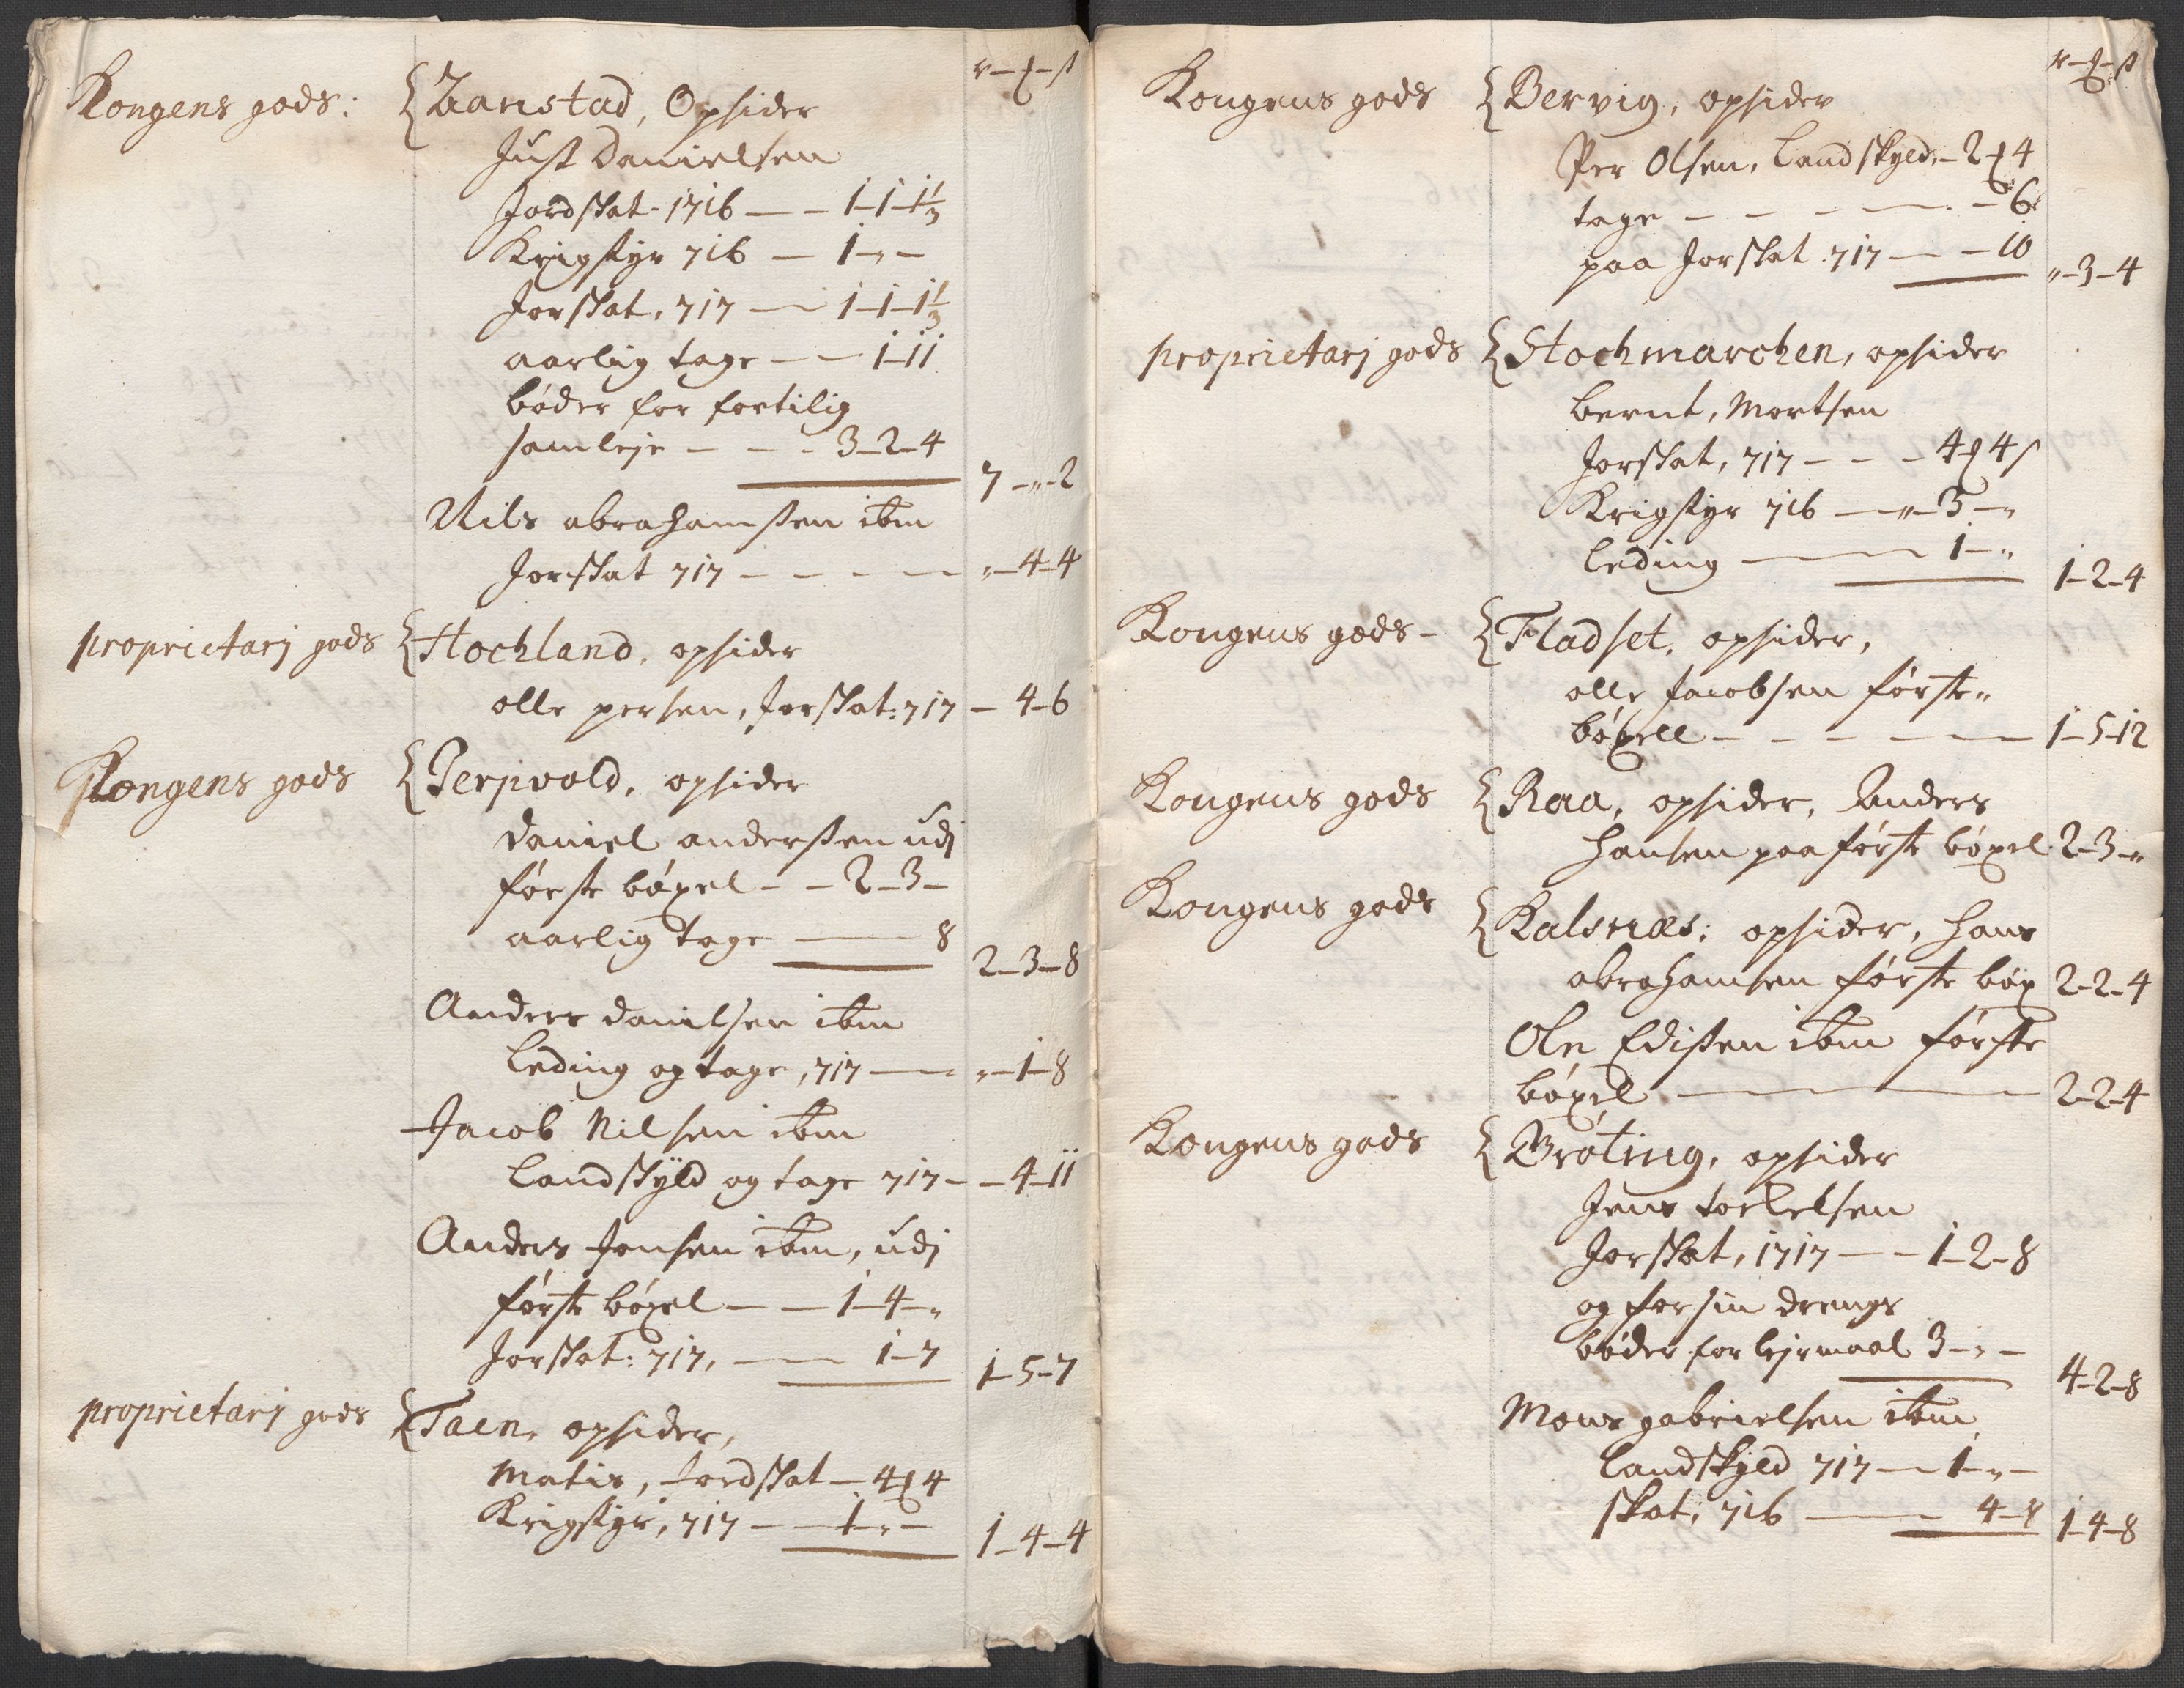 r - ʒ - ß
Kongens gods: { Zanstad, Opsider
Just Danielsen
Jordskat - 1716 — — 1-1-1⅓
Krigstyr 716 — 1-"-
Jorskat, 717 — 1-1-1⅓
aarlig tage — — 1-11
bøder for fortilig
samleje — — - 3-2-4
7-"-2
Nils abrahamsen ibm
Jorskat 717 - - - — "-4-4
proprietarj gods { Hochland, opsider
olle persen, Jorskat: 717 - 4-6
Kongens gods { Jerpvold, opsider
Daniel andersen udj
første bøxel - - 2-3-
aarlig tage — 8
2-3-8
Anders danilsen ibm
leding og tage, 717 — "-1-8
Jacob Nilsen ibm
landskyld og tage 717 - -4-11
Anders Jonsen ibm, udj
første bøxel — — 1-4-"
Jorskat: 717, — 1-7
1-5-7
proprietarj gods { Taen, opsider,
Matis, Jordskat - 4 ʒ 4
Krigstyr, 717 — 1-"-
1-4-4
r - ʒ - ß
Kongens gods { Bervig, opsider
Per Olsen, Landskyld, - 2 ʒ 4
tage - - - — - 6
paa Jorskat 717 — - 10
"-3-4
proprietarj gods { Stochmarchen, opsider
bernt, Mortsen
Jorskat, 717 - - - 4 ʒ 4 ß
Krigstyr 716 — "-3-"
leding — 1-"
1-2-4
Kongens gods - { Fladset, opsider,
olle Jacobsen første
bøxell - - - - — 1-5-12
Kongens gods { Raa, opsider, Anders
Hansen paa første bøxel 2-3-"
Kongens gods { Kalsnæs; opsider, Hans
abrahamsen første bøx 2-2-4
Ole Edissen ibm første
bøxel — 2-2-4
Kongens gods { Brøting, opsider
Jens torkelsen
Jorskat, 1717 — - 1-2-8
og for sin drengs
bøder for lejrmaal 3-"-
4-2-8
Mons gabrielsen ibm
landskyld 717 — 1-"-
skat, 716 — 4-8
1-4-8